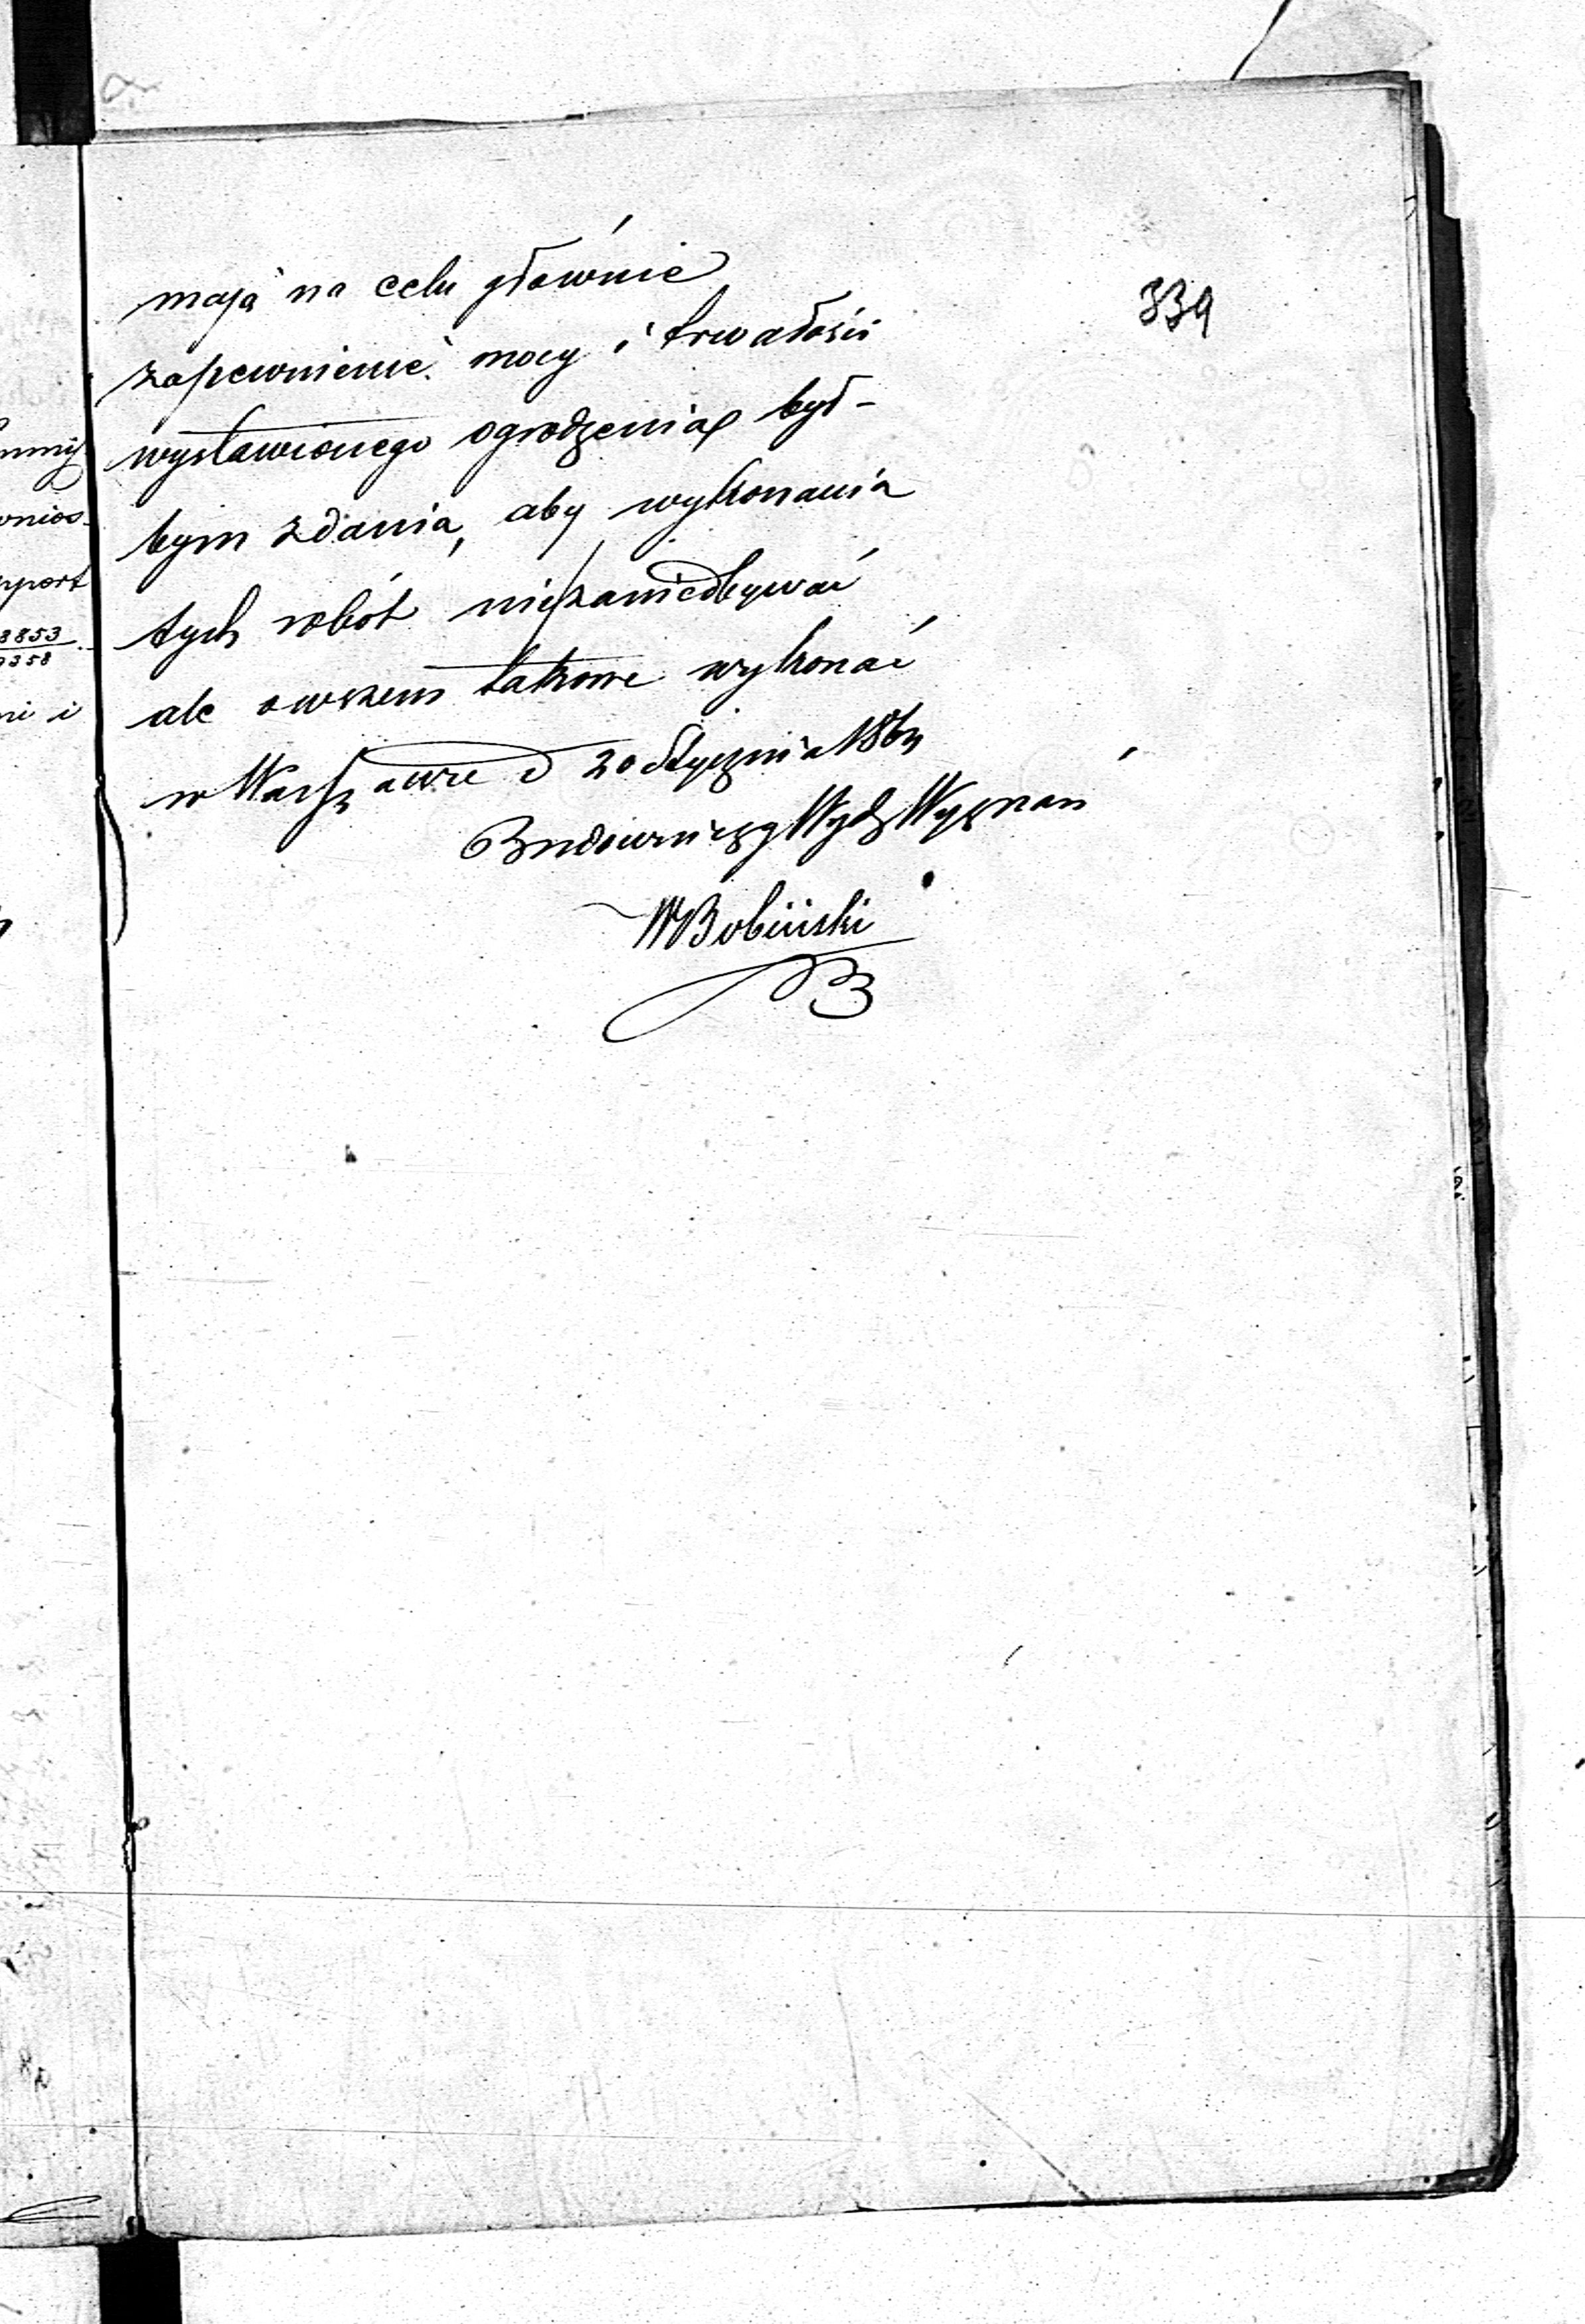 339
mają na celu głównie
zapewnienie mocy i trwałości
wystawionego ogrodzenia, był-
bym zdania, aby wykonania
tych robót niezaniedbywać
ale owszem takowe wykonać
w Warszawie d 20 Stycznia 1864
Budowniczy Wydz Wyznań
WBobiński